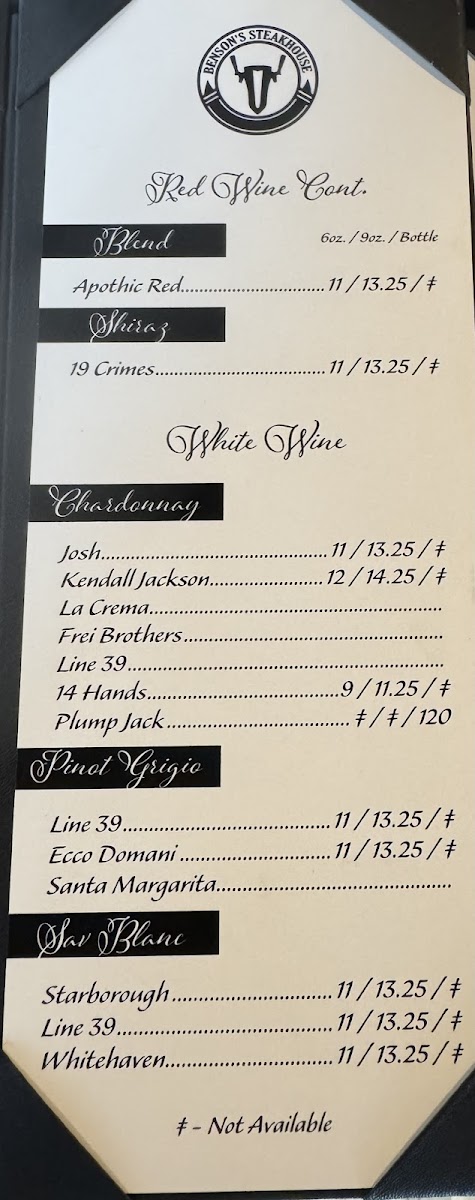 BENSON'S STEAKHOUSE
Red Wine Cont.
Blend 6oz. / 9oz. / Bottle
Apothic Red..........................11 / 13.25 / ‡
Shiraz
19 Crimes...............................11 / 13.25 / ‡
White Wine
Chardonnay
Josh.........................................11 / 13.25 / ‡
Kendall Jackson....................12 / 14.25 / ‡
La Crema.....................................................
Frei Brothers...............................................
Line 39.........................................................
14 Hands..................................9 / 11.25 / ‡
Plump Jack.................................‡ / ‡ / 120
Pinot Grigio
Line 39.....................................11 / 13.25 / ‡
Ecco Domani...........................11 / 13.25 / ‡
Santa Margarita..........................................
Sav Blanc
Starborough............................11 / 13.25 / ‡
Line 39......................................11 / 13.25 / ‡
Whitehaven.............................11 / 13.25 / ‡
‡ - Not Available